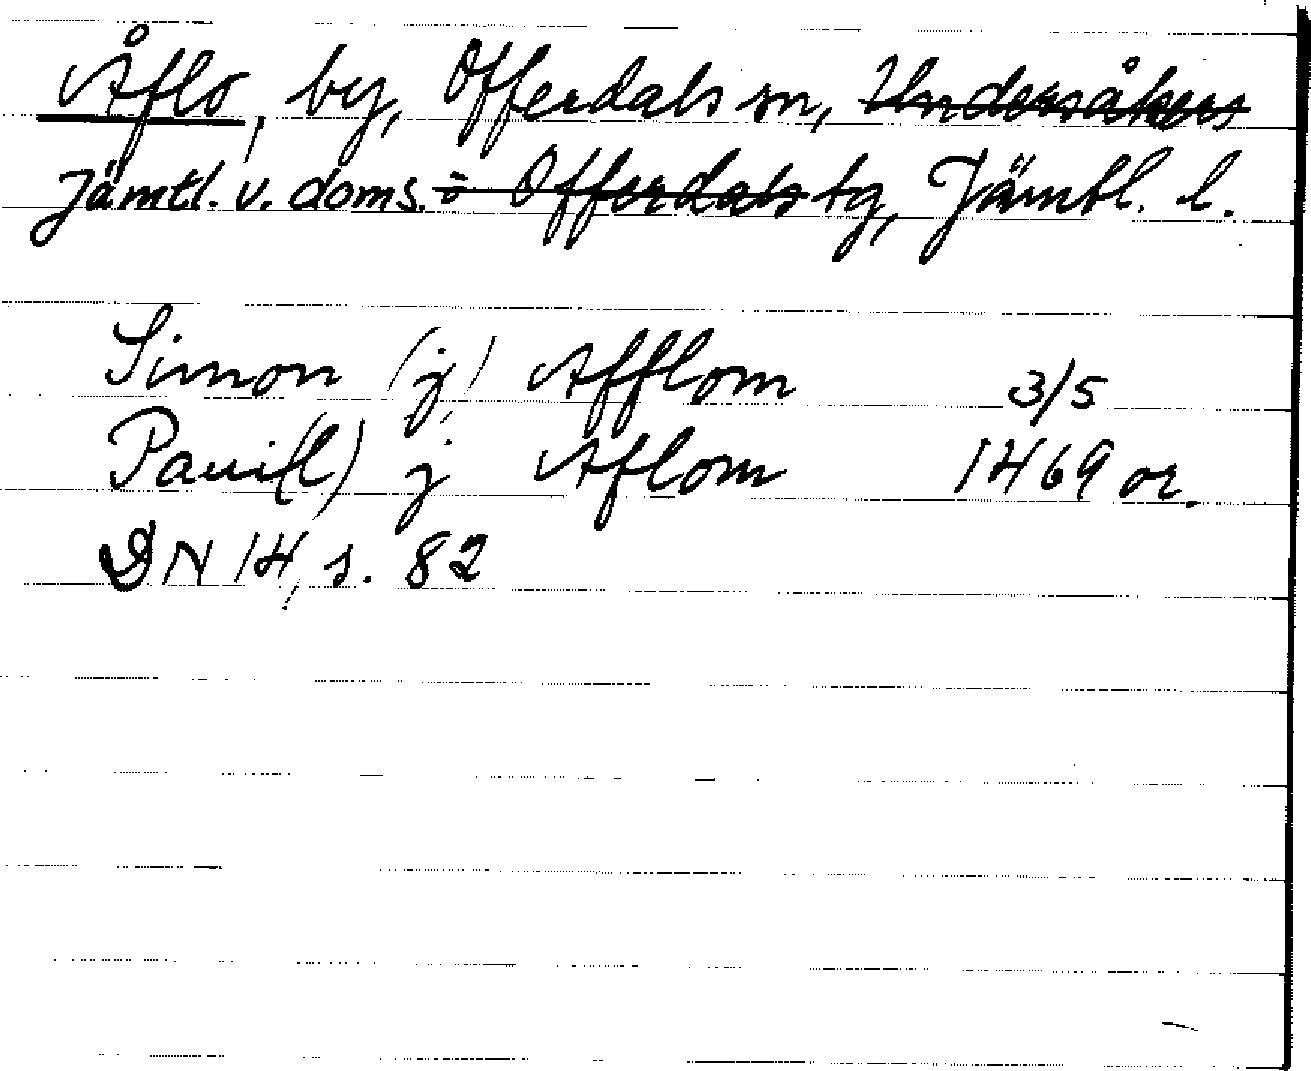 Åflo, by, Offerdals sn, Undersåkers
Jämtl. v. doms. o Offerdals tg, Jämtl. l.
Simon (j) Afflom 3/5
Pauil(l) j Aflom 1469 or.
DN 14, s. 82